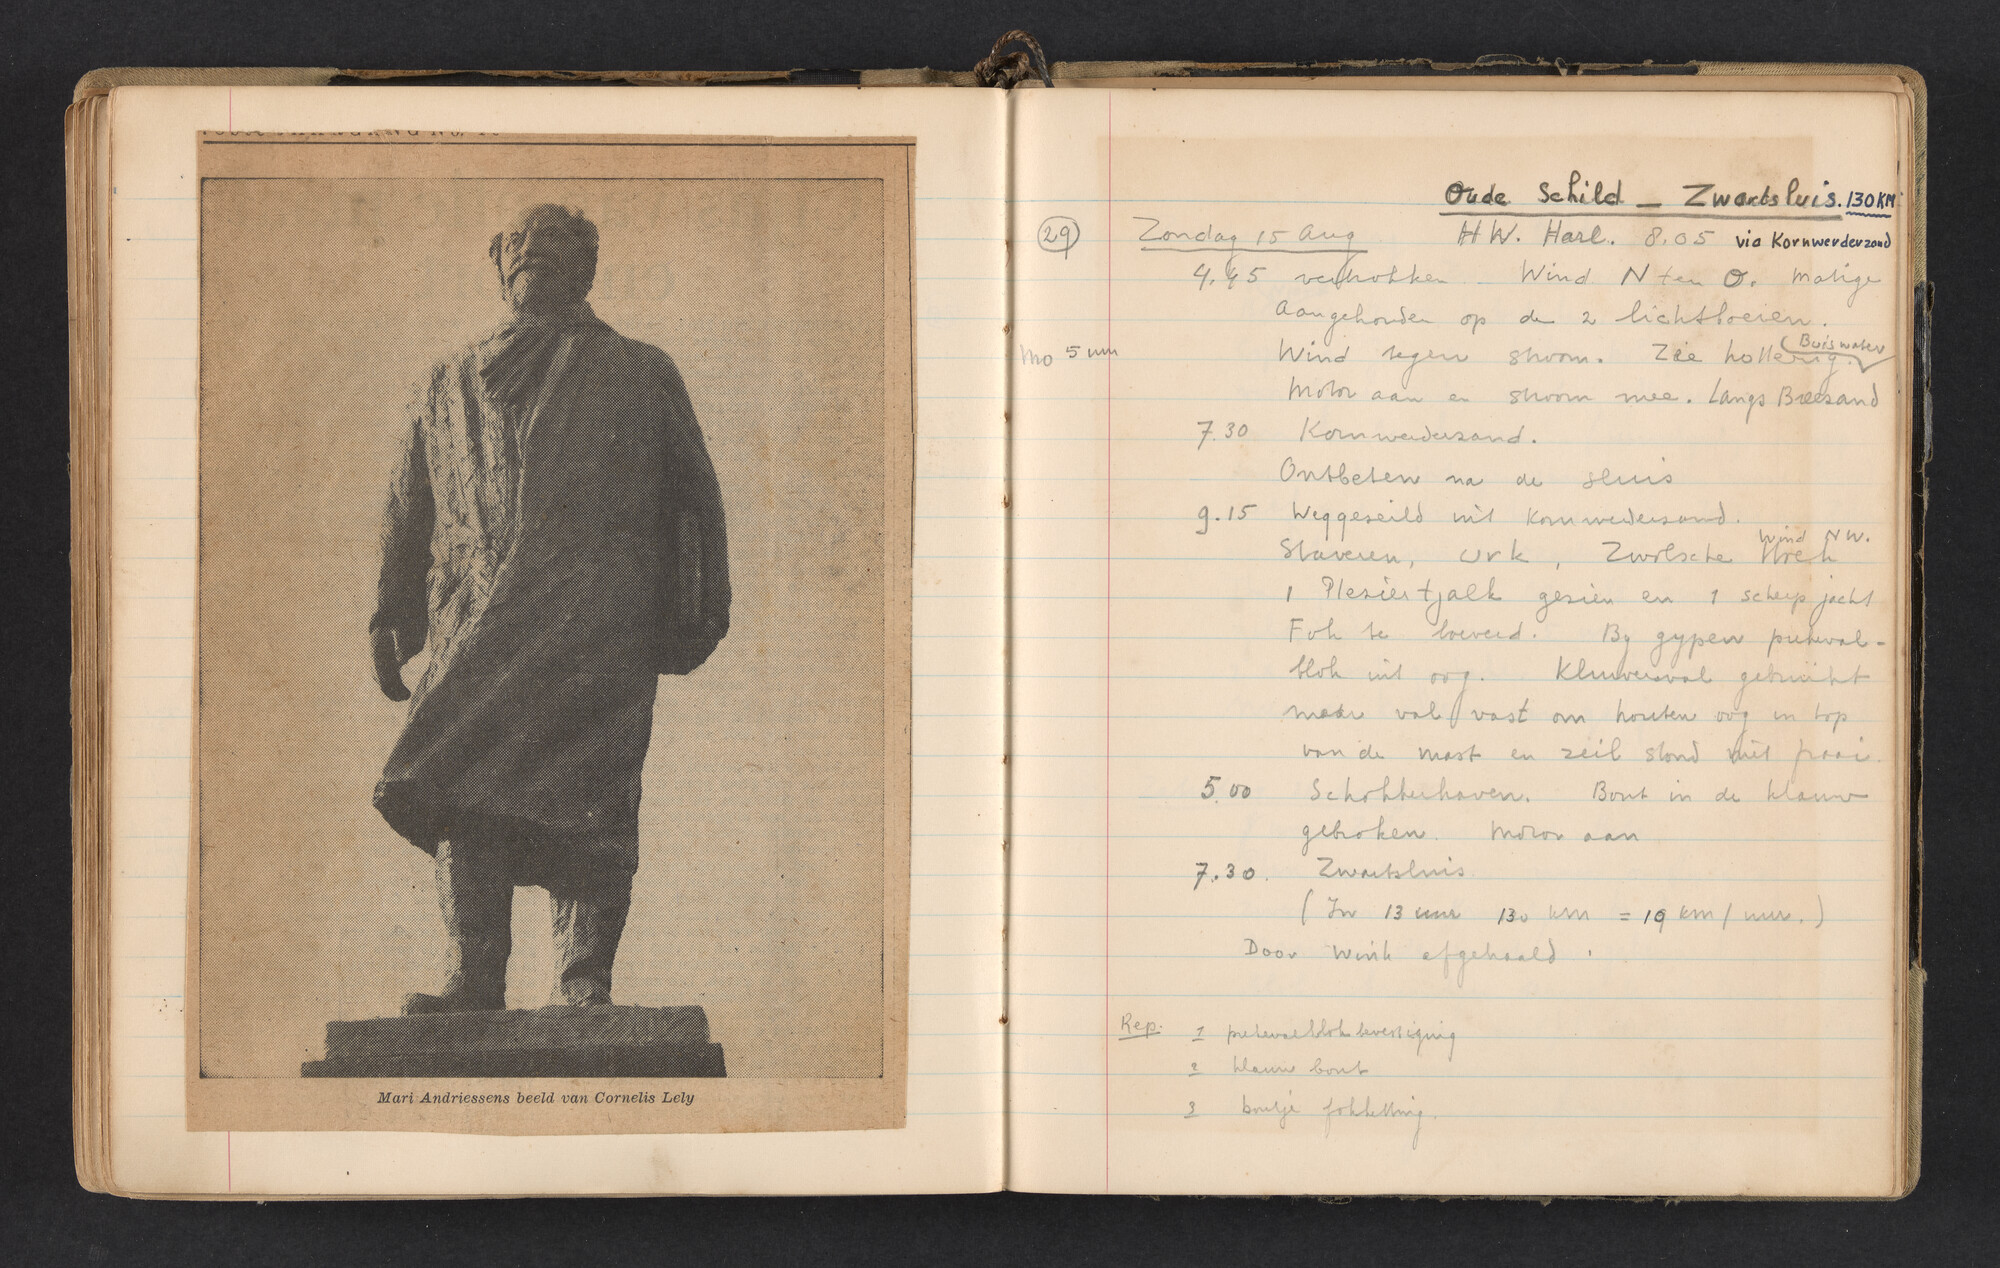 Mari Andriessens beeld van Cornelis Lely
Oude Schild — Zwartsluis. 130 KM
29 Zondag 15 Aug H W. Harl. 8.05 via Kornwerderzand
4.45 vertrokken Wind N ten O. matige
Aangehouden op de 2 lichtboeien.
Mo 5 uur Wind tegen stroom. Zee hollerig. (Buiswater)
Motor aan en stroom mee. Langs Breezand
7.30 Kornwerderzand.
Ontbeten na de sluis
9.15 Weggezeild uit Kornwerderzand.
Wind NW.
Staveren, Urk, Zwolsche Hoek
1 Pleziertjalk gezien en 1 scherp jacht
Fok te loevert. By gypen piekeval-
blok uit oog. Kluiverval gebruikt
maar val vast om houten oog in top
van de mast en zeil stond niet fraai.
5.00 Schokkerhaven. Bout in de klauw
gebroken. Motor aan
7.30. Zwartsluis
(In 13 uur 130 km = 10 km/uur.)
Door Wink afgehaald.
Rep. 1 piekevalblok bevestiging
2 klauw bout
3 boutje fok